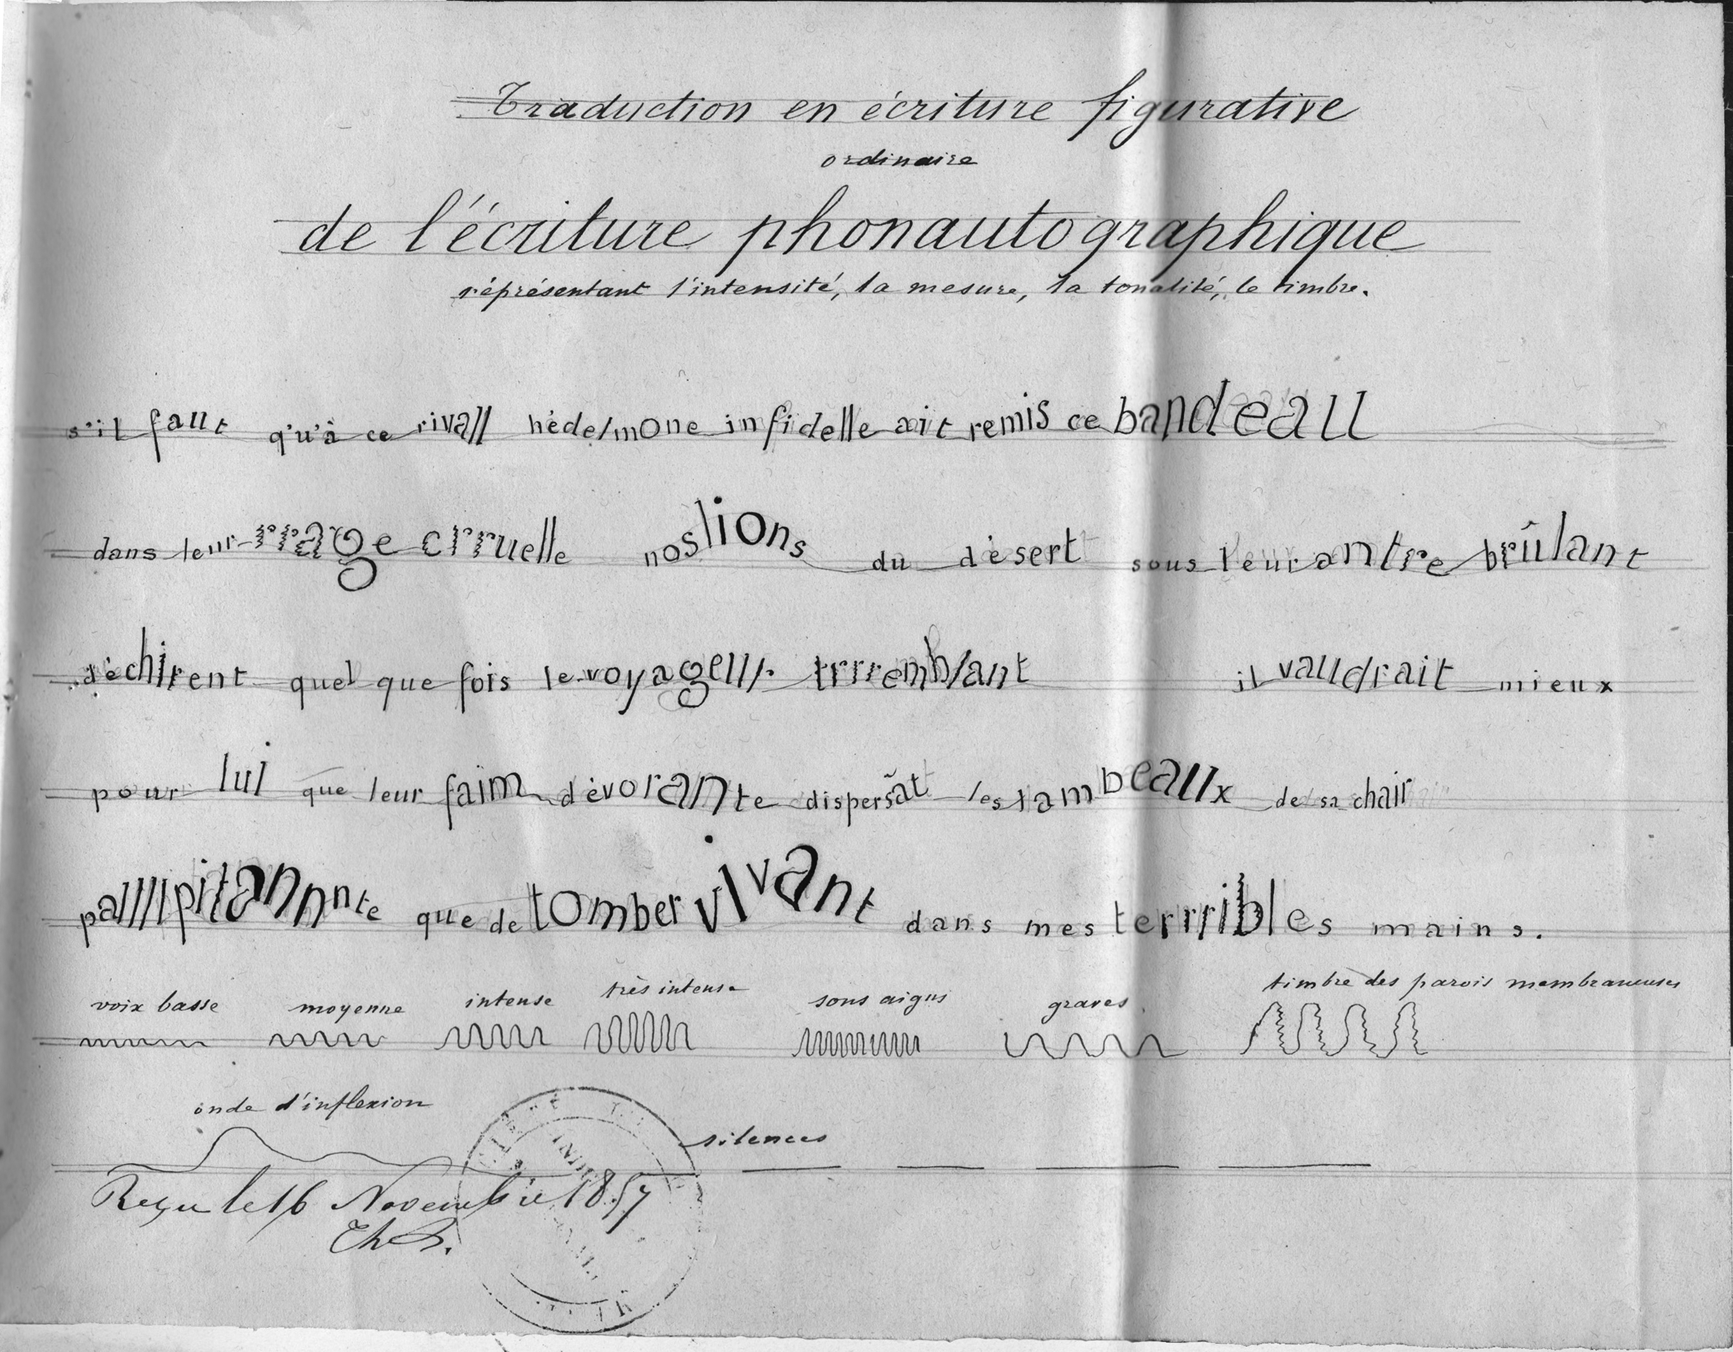 Traduction en écriture figurative
ordinaire
de l'écriture phonautographique
réprésentant l'intensité, la mesure, la tonalité, le timbre.
s'il faut qu'à ce rivall hèdelmone infidelle ait remis ce bandeau
dans leur rrage crruelle nos lions du désert sous leur antre brûlant
déchirent quel que fois le voyageur trrremblant il vaudrait mieux
pour lui que leur faim dévorante dispersât les lambeaux de sa chair
palllpitannnte que de tomber vivant dans mes terrribles mains.
voix basse moyenne intense très intense sons aigus graves timbre des parois membraneuses
onde d'inflexion silences
Reçu le 16 Novembre 1857